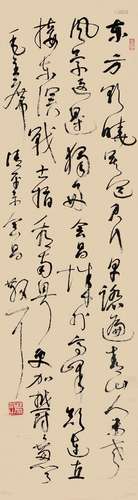 东方欲晓莫道君行早踏遍青山人未老
风景这边独好会昌城外高峰颠连直
接东溟战士指看南粤更加郁郁葱葱
毛主席清平乐会昌散耳